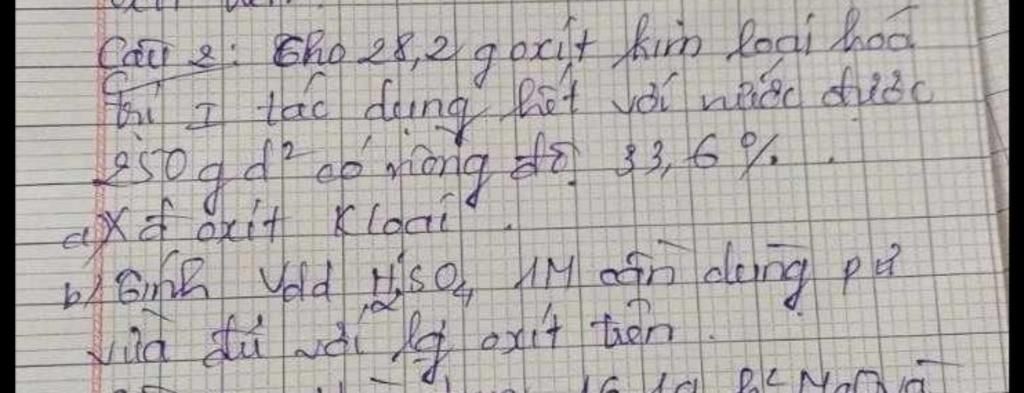 Câu 2: Cho 28,2 g oxit kim loại hoá
trị I tác dụng hết với nước được
250 g d² có nồng độ 33,6%.
a) Xđ oxit Kloai.
b) Tính Vdd H2SO4 1M cần dùng pứ
vừa đủ với lg oxit trên.